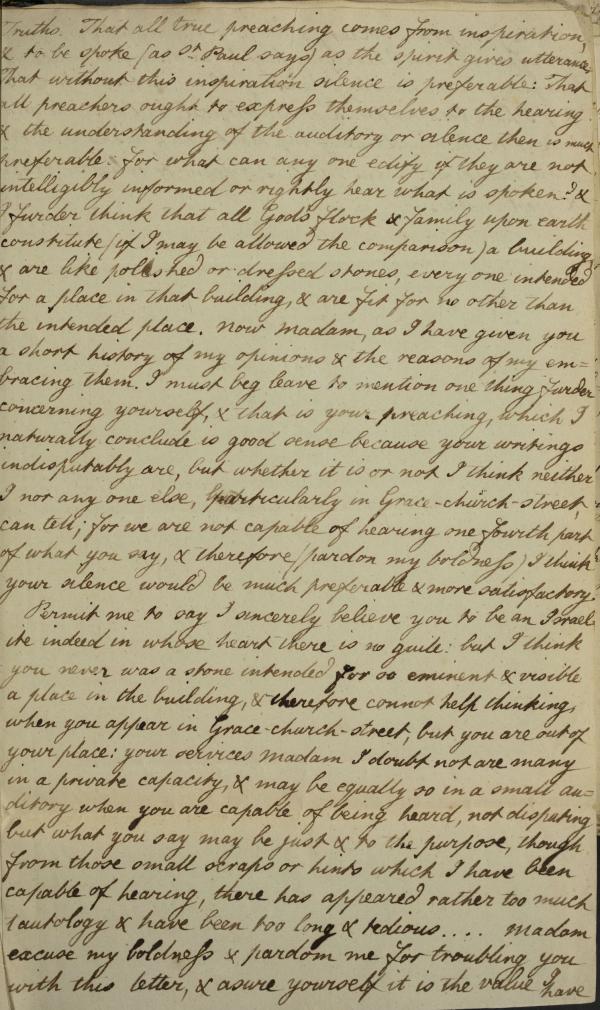 Truths. That all true preaching comes from inspiration,
& to be spoke (as St Paul says) as the spirit gives utterance
That without this inspiration silence is preferable: That
all preachers ought to express themselves to the hearing
& the understanding of the auditory or silence then is much
preferable: for what can any one edify if they are not
intelligibly informed or rightly hear what is spoken? &
I furder think that all Gods flock & family upon earth
constitute (if I may be allowed the comparison) a building,
& are like polished or dressed stones, every one intended
for a place in that building, & are fit for no other than
the intended place. Now Madam, as I have given you
a short history of my opinions & the reasons of my em=
bracing them. I must beg leave to mention one thing furder
concerning yourself, & that is your preaching, which I
naturally conclude is good sense because your writings
indisputably are, but whether it is or not I think neither
I nor any one else, (particularly in Grace-church-street,
can tell; for we are not capable of hearing one fourth part
of what you say, & therefore (pardon my boldness) I think
your silence would be much preferable & more satisfactory.
Permit me to say I sincerely believe you to be an Israel
ite indeed in whose heart there is no guile: but I think
you never was a stone intended for so eminent & visible
a place in the building, & therefore connot help thinking,
when you appear in Grace-church-street, but you are out of
your place: your services Madam I doubt not are many
in a private capacity, & may be equally so in a small au=
ditory when you are capable of being heard, not disputing
but what you say may be just & to the purpose, though
from those small scraps or hints which I have been
capable of hearing, there has appeared rather too much
tautology & have been too long & tedious.... Madam
excuse my boldness & pardom me for troubling you
with this letter, & asure yourself it is the value I have